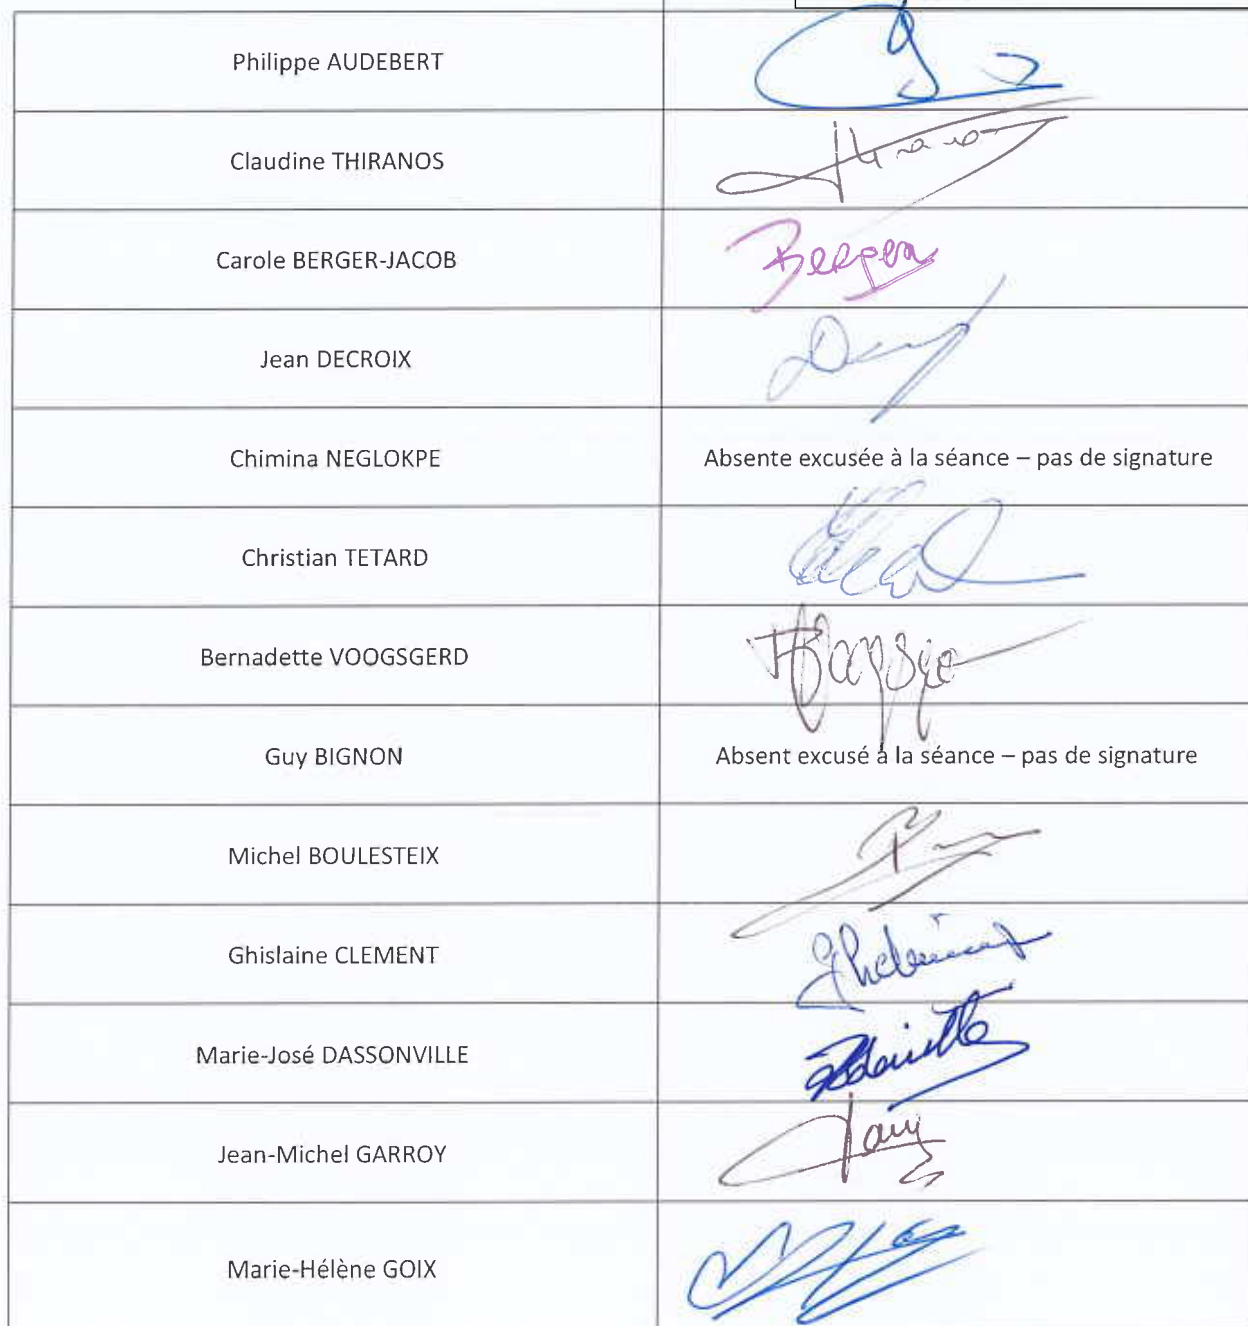 Philippe AUDEBERT
Claudine THIRANOS
Carole BERGER-JACOB
Berger
Jean DECROIX
Chimina NEGLOKPE
Absente excusée à la séance – pas de signature
Christian TETARD
Bernadette VOOGSGERD
Guy BIGNON
Absent excusé à la séance – pas de signature
Michel BOULESTEIX
Ghislaine CLEMENT
Marie-José DASSONVILLE
Jean-Michel GARROY
Marie-Hélène GOIX